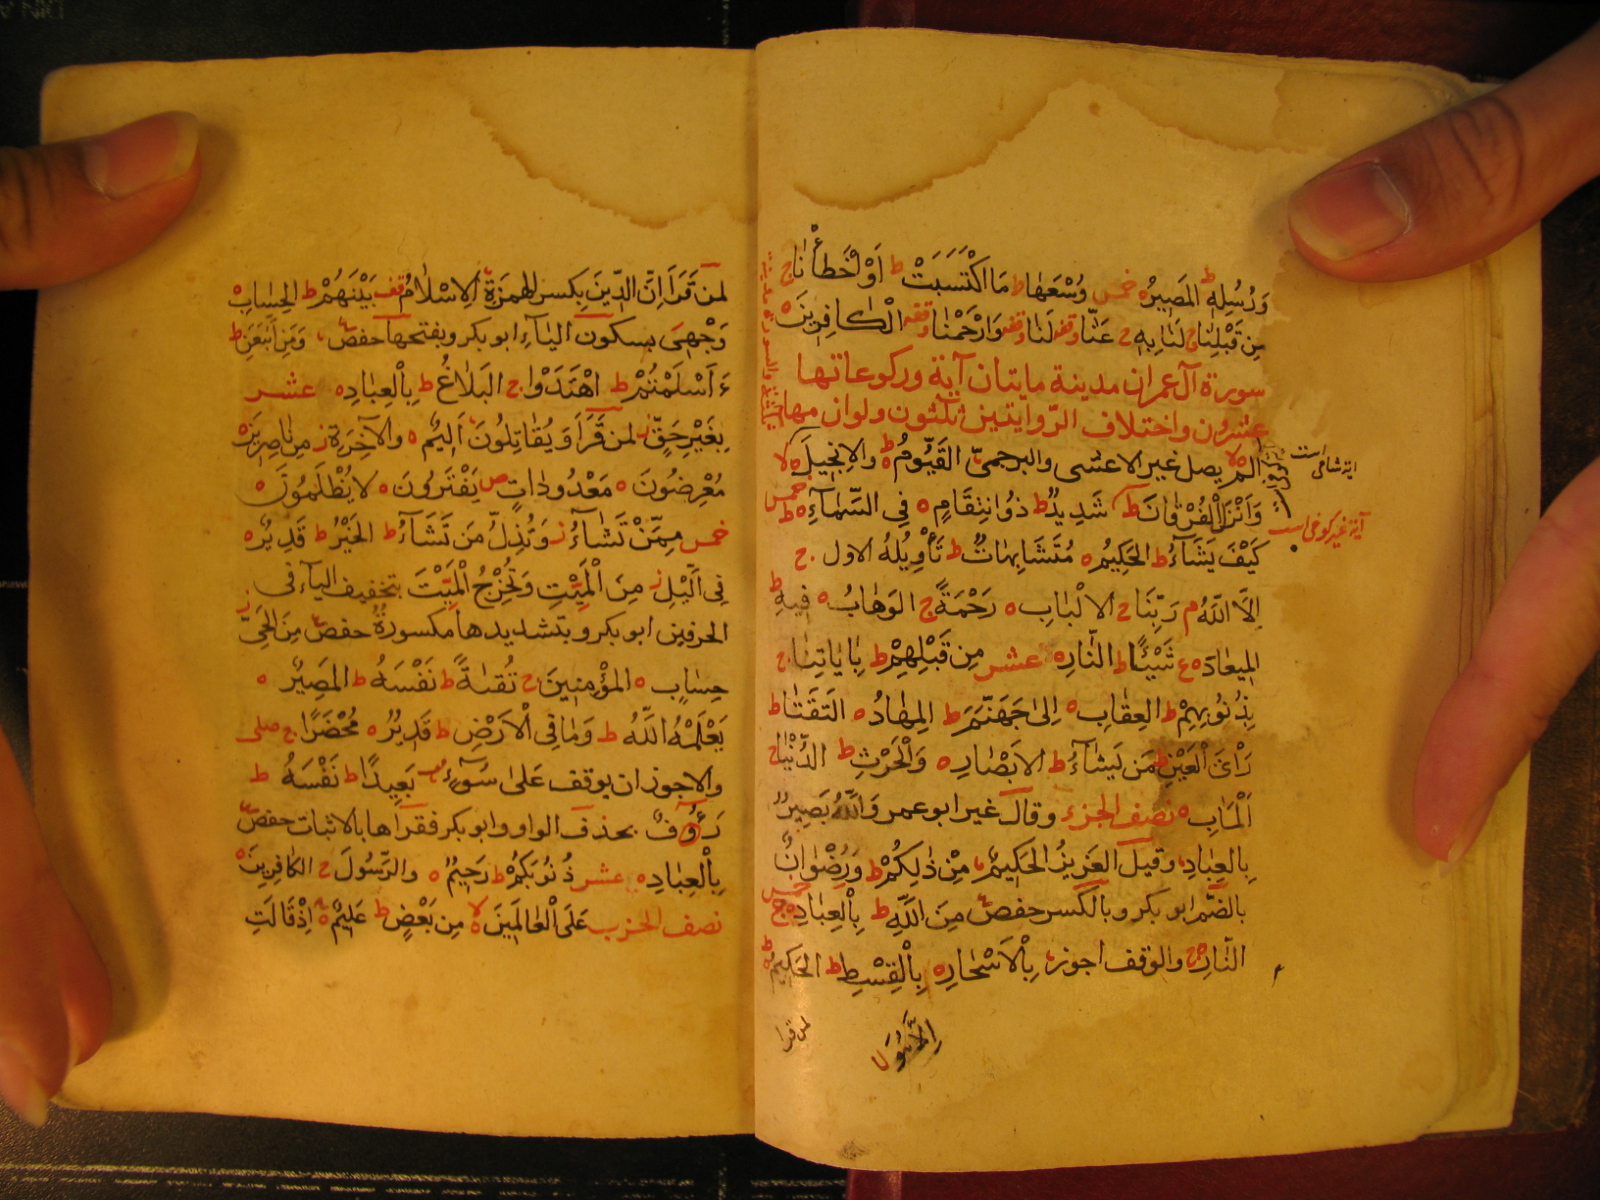 وَرُسُلِهِ ط المَصِيرُ ه خمس وُسْعَهَا ط مَا اكْتَسَبَتْ ط اَوْ اَخْطَأْنَا ج
مِن قَبْلِنَا ج لَنَا بِهِ ج عَنَّا وقفه لَنَا وقفه وَارْحَمْنَا وقفه الْكَافِرِينَ ه
سورة آل عمران مدينة مايتان آية وركوعاتها
عشرون واختلاف الرّوايتين ثلثون ولوان مهاة
الم ه لا يصل غير الاعشى والبرجمىّ القَيُّومُ ط ه والاِنجِيلَ ه لا
وَاَنْزَلَ الْفُرْقَانَ ط شَدِيدٌ ط ذُو انتِقَامٍ ه فِى السَّمَآءِ ه ط خمس
كَيْفَ يَشَآءُ ط الحَكِيمُ ه مُتَشَابِهَاتٌ ط تَأْوِيلُهُ الاول ج
اِلَّا اللّٰهُ م رَبِّنَا ج الالْبَابِ ه رَحْمَةً ج الوَهَّابُ ه فِيهِ ط
المِيعَادَ ه ع شَيْئًا ط النَّارِ ه عشر مِن قَبْلِهِمْ ط بِاٰيَاتِنَا ج
بِذُنُوبِهِمْ ط العِقَابِ ه اِلىٰ جَهَنَّمَ ط المِهَادُ ه التَقَتَا ط
رَأْىَ الْعَيْنِ ط مَن يَشَآءُ ط الاَبْصَارِ ه وَالْحَرْثِ ط الدُّنْيَا ج
الْمَاٰبِ ه نصف الجزء وقال غير ابو عمر وَاللّٰهُ بَصِيرٌ
بِالعِبَادِ وقيل العَزِيزُ الحَكِيمُ مِنْ ذٰلِكُمْ ط وَرِضْوَانٌ
بالضّم ابو بكر وبالكسر حفص مِنَ اللّٰهِ ط بِالْعِبَادِ ه ج خمس
النَّارِ ه ج والوقف اجوز بِالْاَسْحَارِ ه بِالْقِسْطِ ط الحَكِيمُ ه ط
لمن قرا
آية غير كوفى است
لمن قَرَأَ اِنَّ الدِّينَ بكسر الهمزة الاِسْلَامُ قف بَيْنَهُمْ ط الحِسَابِ ه
وَجْهِىَ بسكون اليآء ابو بكر ويفتحها حفص وَمَنِ اتَّبَعَنِ ط
ءَاَسْلَمْتُمْ ط اهْتَدَوْا ج البَلَاغُ ط بِالْعِبَادِ ه عشر
بِغَيْرِ حَقٍّ ز لمن قَرَأَ وَيُقَاتِلُونَ اَلِيمٍ ه والآخِرَةِ ز مِن نَاصِرِينَ ه
مُعْرِضُونَ ه مَعْدُودَاتٍ ص يَفْتَرُونَ ه لا يُظْلَمُونَ ه
خمس مِمَّنْ تَشَآءُ ز وَتُذِلُّ مَن تَشَآءُ ط الخَيْرُ ط قَدِيرٌ ه
فِى الَّيْلِ ز مِنَ الْمَيِّتِ وَتُخْرِجُ الْمَيِّتَ بتخفيف اليآء فى
الحرفين ابو بكر وبتشديدها مكسورة حفص مِنَ الحَىِّ ز
حِسَابٍ ه المُؤْمِنِينَ ج تُقٰىةً ط نَفْسَهُ ط المَصِيرُ ه
يَعْلَمْهُ اللّٰهُ ط وَمَا فِى الْاَرْضِ ط قَدِيرٌ ه مُحْضَرًا ج صلى
والاجوز ان يوقف عَلىٰ سُوٓءٍ بَعِيدًا ط نَفْسَهُ ط
رَءُوفٌ بحذف الواو ابو بكر فقراها بالاثبات حفص
بِالْعِبَادِ ه عشر ذُنُوبَكُمْ ط رَحِيمٌ ه والرَّسُولَ ج الكَافِرِينَ ه
نصف الحزب عَلَى الْعَالَمِينَ لا ه مِن بَعْضٍ ط عَلِيمٌ ه اِذْ قَالَتِ